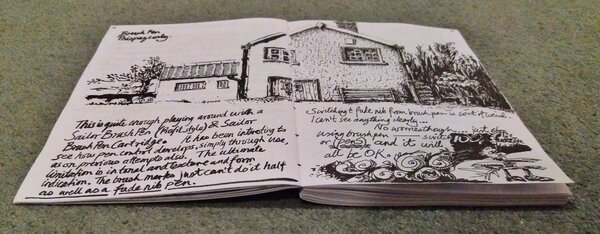 Brush Pen
This page only.
This is quite enough playing around with a
Sailor Brush Pen (Profit Style) & Sailor
Brush Pen Cartridge. It has been interesting to
see how pen control develops, simply through use,
as on previous attempts also. The ultimate
limitation is in tonal and texture and form
indication. The brush marks just can't do it half
as well as a fude nib pen.
Switching to fude nib from brush pen is sort of weird.
I can't see anything clearly
No worries though. just stop
using brush pen
or (pens) and it will
all be OK.